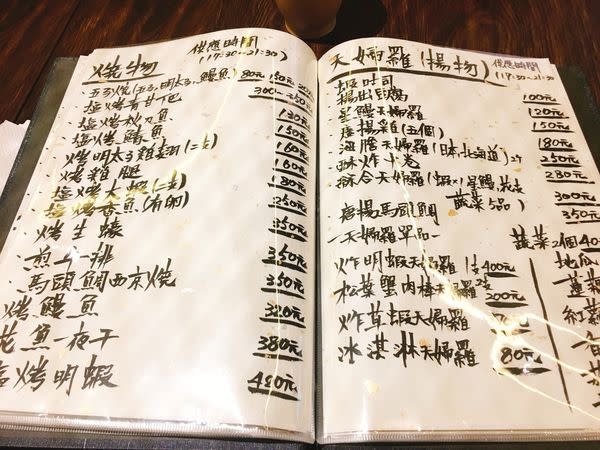 燒物 供應時間
(17:30~21:30)
玉子燒(玉子,明太子,鰻魚) 80元 150元 200元
塩烤青甘下巴 300元~350元
塩烤秋刀魚 130元
塩烤鯖魚 150元
烤明太子雞翅(二支) 160元
烤雞腿 160元
塩烤大蝦(二支) 180元
塩烤香魚(有卵) 250元
烤生蠔 350元
煎牛排 350元
馬頭鯛西京燒 350元
烤鰻魚 320元
花魚一夜干 380元
塩烤明蝦 420元
天婦羅(揚物) 供應時間
(17:30~21:30
蝦吐司 100元
揚出豆腐 120元
星鰻天婦羅 150元
唐揚雞(五個) 180元
海膽天婦羅(日本,北海道) 250元
酥炸干卷 280元
綜合天婦羅(蝦x1,星鰻,
蔬菜5品) 300元
唐揚馬頭鯛 350元
天婦羅單品 蔬菜2個40元
炸明蝦天婦羅 1支400元
松葉蟹肉棒天婦羅 2支200元
炸草蝦天婦羅 70元
冰淇淋天婦羅 80元
地瓜
蓮
紅